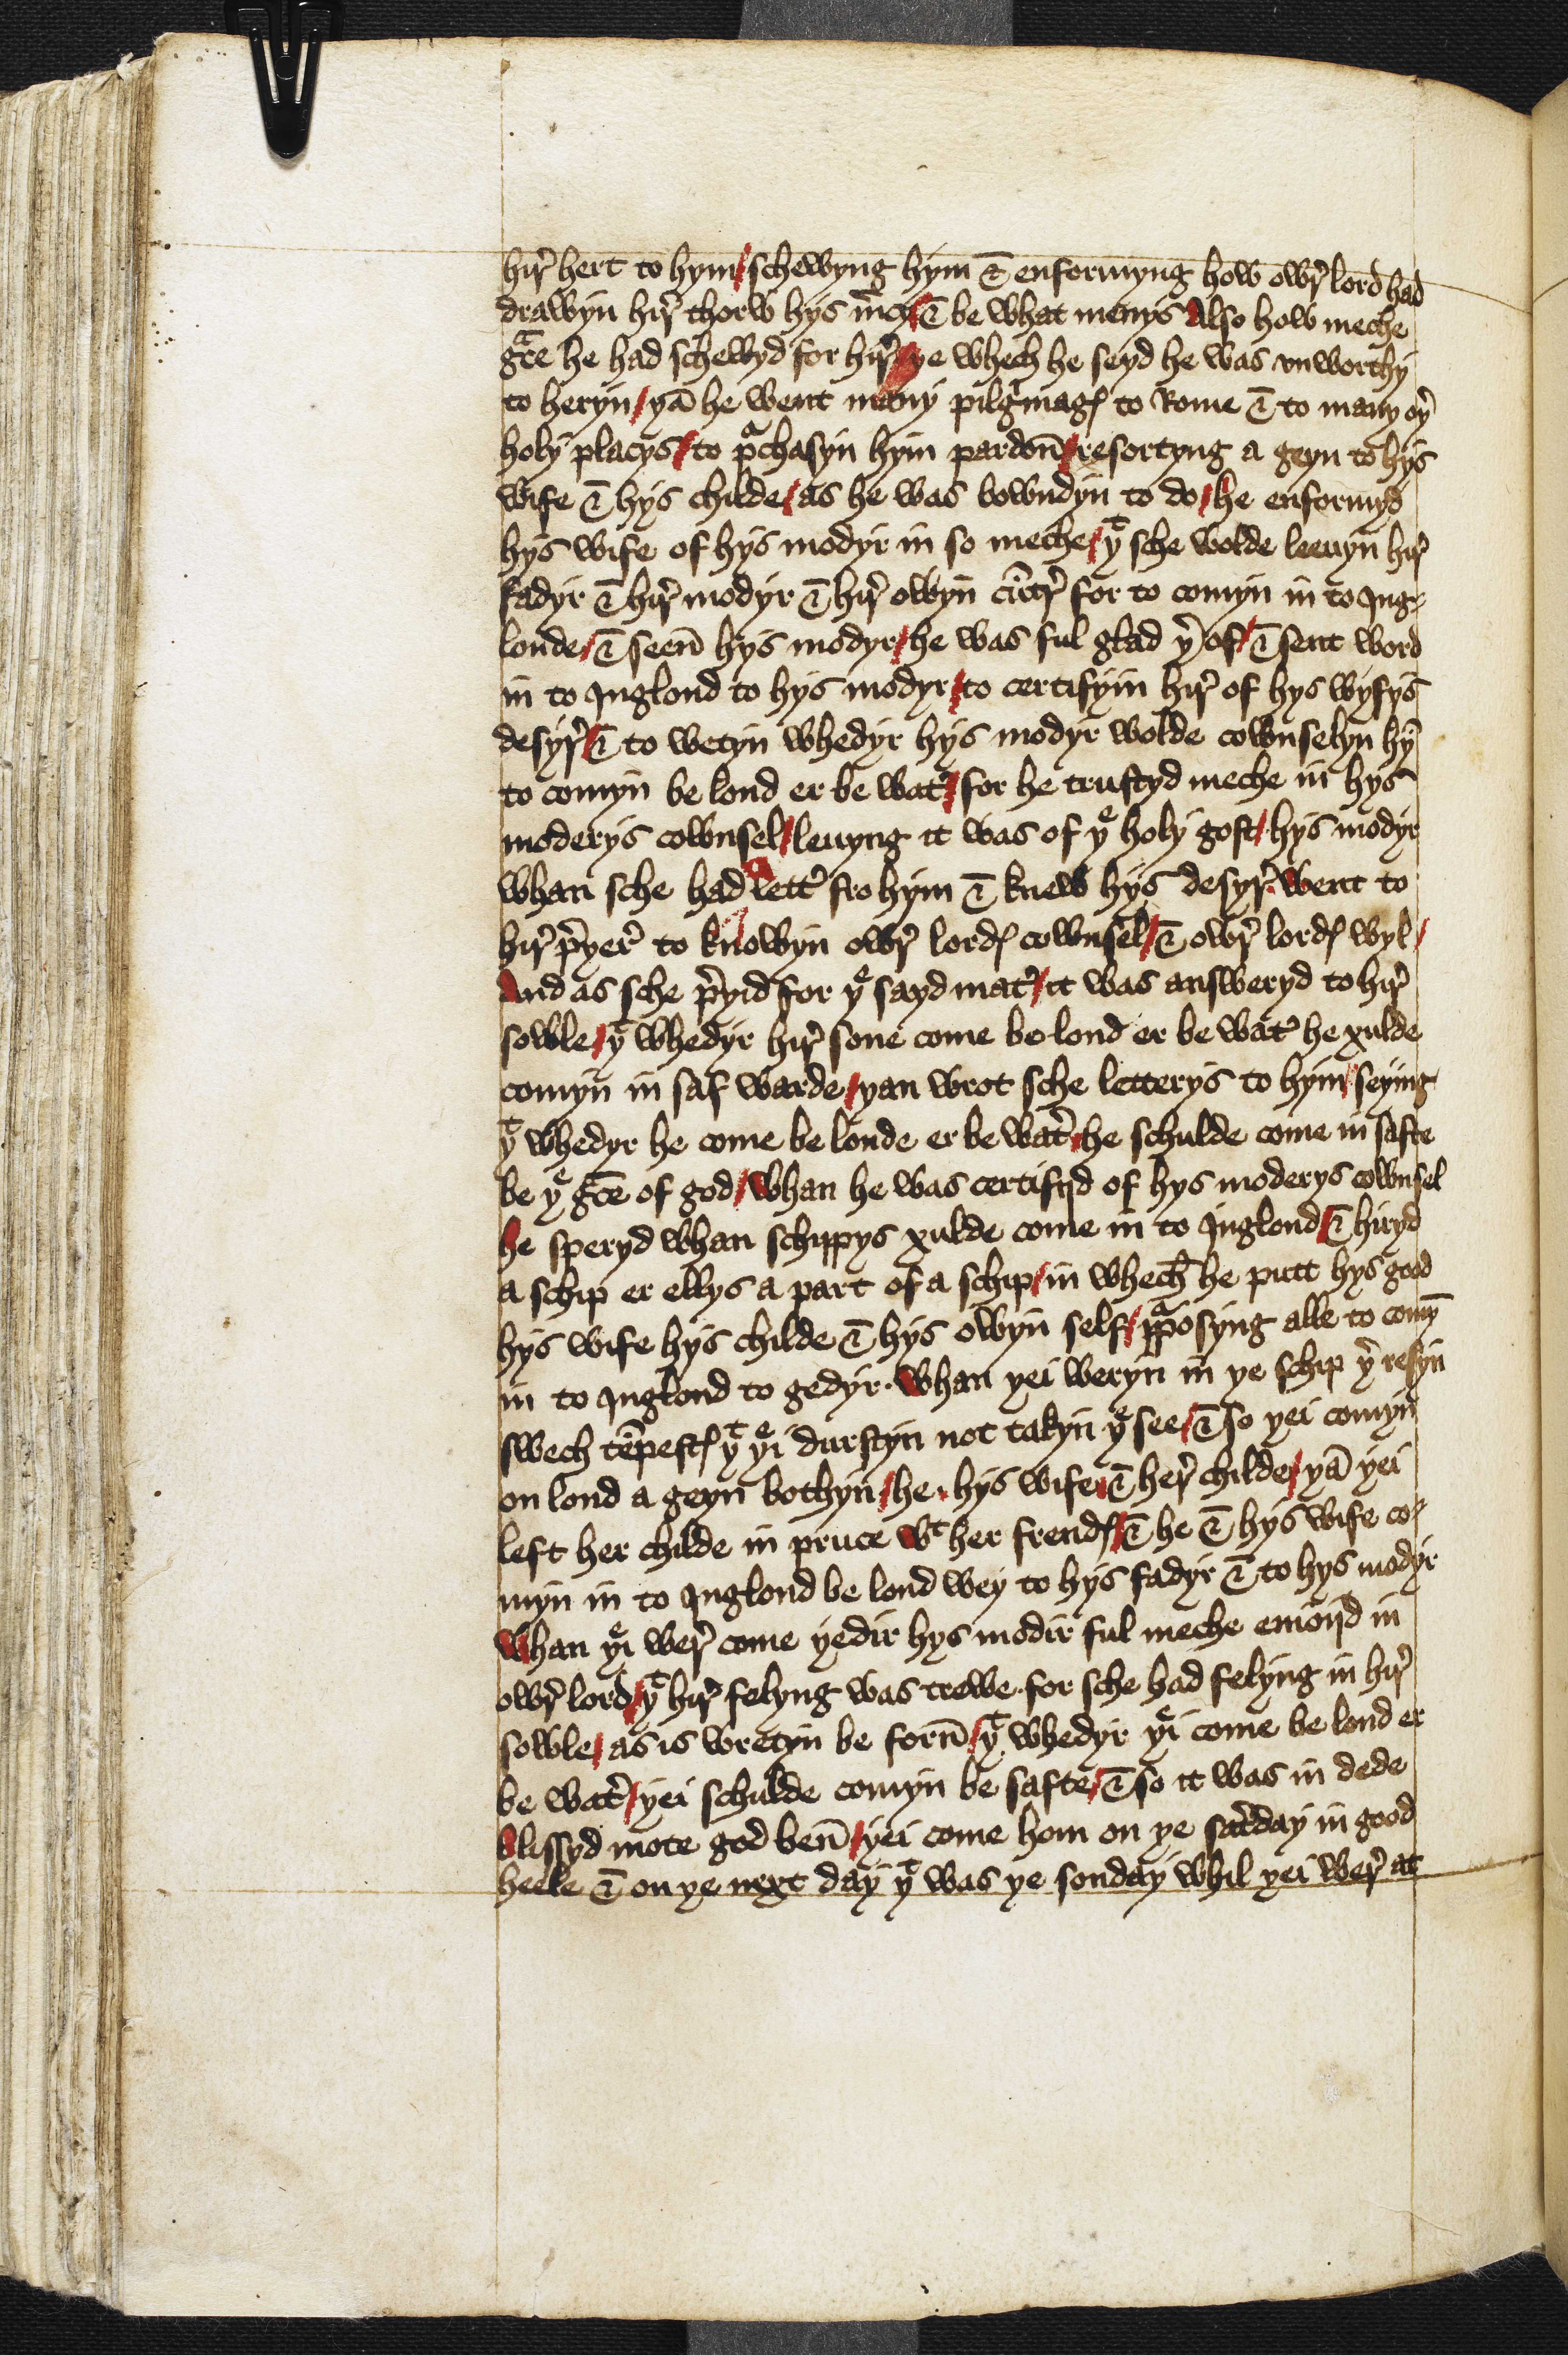 hir̉ hert to hym / schewyng hym & enformyng how owr̉ lord had
drawyn hir̉ thorw hys m̉cy / & be what menys Also how meche
gᵃce he had schewyd for hir̉ / ye whech he seyd he was vnworthy
to heryn / yā he went many pilgrimagꝭ to Rome & to many oỷ
holy placys / to pᵃchasyn hym pardon̄ / resortyng a geyn to hys
wife & hys childe / as he was bowndyn to do / he enformyd
hys wife of hys modyr in so meche / yᵗ sche wolde leeuyn hir̉
fadyr & hir̉ modyr & hir̉ owyn cūtr̉ for to comyn in to Jng⸗
londe / & seen̄ hys modyr / he was ful glad ỷ of / & sent word
in to Jnglond to hys modyr / to certifyin hir̉ of hys wyfys
desyr̉ / & to wetyn whedyr hys modyr wolde cownselyn hȳ
to comyn be lond er be wat̉ / for he trustyd meche in hys
moderys cownsel / leuyng it was of yᵉ holy gost / hys modyr
whan sche had a lett̉ fro hym & knew hys desyr̉ / went to
hir̉ p̉yer̉ to knowyn owr̉ lordꝭ cownsel / & owr̉ lordꝭ wyl /
And as sche p̉yid for yᵉ sayd mat̉ / it was answeryd to hir̉
sowle / yᵗ whedyr hir̉ sone come be lond er be wat̉ he xulde
comyn in saf warde / yan wrot sche letterys to hym / seying
yᵗ whedyr he come be londe er be wat̉ / he schulde come in safte
be yᵉ gᵃce of god / whan he was certifijd of hys moderys cownsel
he speryd whan schippys xulde come in to Jnglond / & hiryd
a schip er ellys a part of a schip / in whech he putt hys good
hys wife hys childe & hys owyn self / pᵃposyng alle to comȳ
in to Jnglond to gedyr · whan yei weryn in ye schip ỷ resyn
swech tēpestꝭ yᵗ yᵉi durstyn not takyn yᵉ see / & so yei comyn
on lond a geyn bothyn / he · hys wife / & her̉ childe / yā yei
left her childe in pruce wᵗ her frendꝭ / & he & hys wife co⸗
myn in to Jnglond be lond wey to hys fadyr & to hys modyr
whan yᵉi wer̉ come yedir hys modir ful meche enioijd in
owr̉ lord / yᵗ hir̉ felyng was trewe · for sche had felyng in hir̉
sowle / as is wretyn be forn̄ / yᵗ whedyr yᵉi come be lond er
be wat̉ / yei schulde comyn be safte / & so it was in dede
blissyd mote god ben̄ / yei come hom on ye sat̉day in good
heele & on ye next day yᵗ was ye sonday whil yei wer̉ at